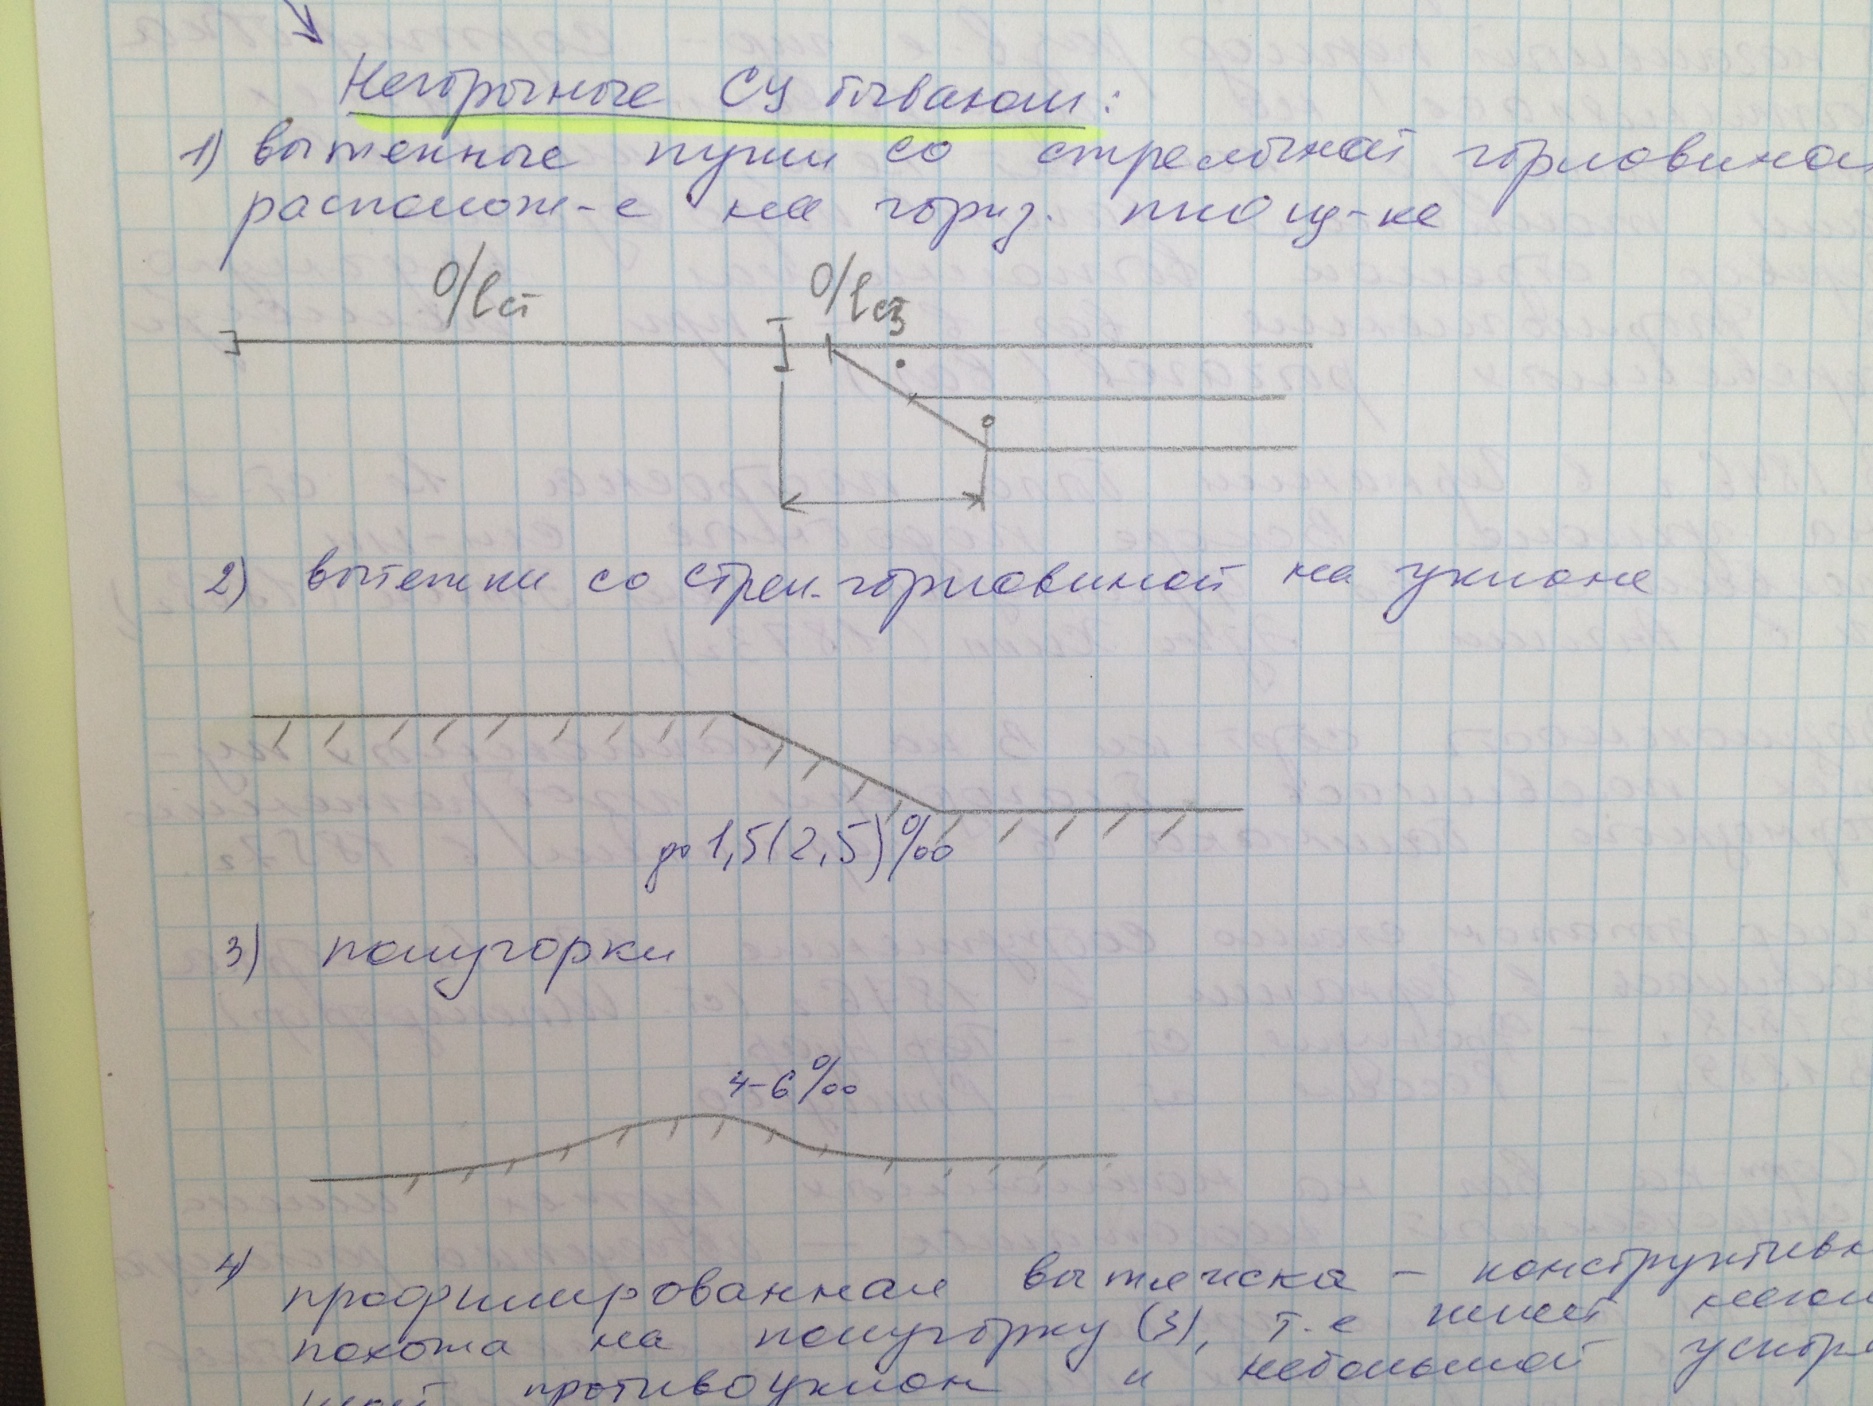 Негорочные СУ бывают:
1) вытяжные пути со стрелочной горловиной
располож-е на гориз. площ-ке
0/lст
0/lсз
2) вытяжки со стрел. горловиной на уклоне
до 1,5(2,5)‰
3) полугорки
4-6‰
4) профилированная вытяжка – конструктивн
похожа на полугорку (3), т.е имеет
противоуклон и небольшой ускор